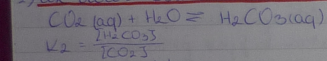 CO2 (aq) + H2O ⇌ H2CO3(aq)
K2 = [H2CO3] / [CO2]